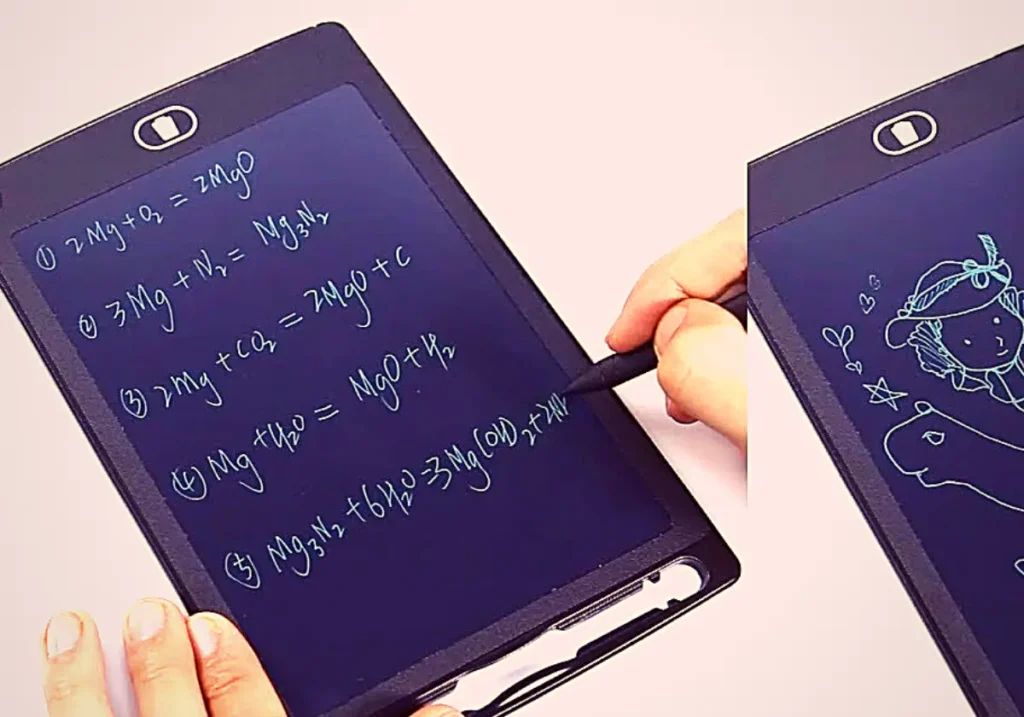 ① 2Mg+O₂ = 2MgO
② 3Mg+N₂ = Mg₃N₂
③ 2Mg+CO₂ = 2MgO+C
④ Mg+H₂O = MgO+H₂
⑤ Mg₃N₂+6H₂O=3Mg(OH)₂+2N